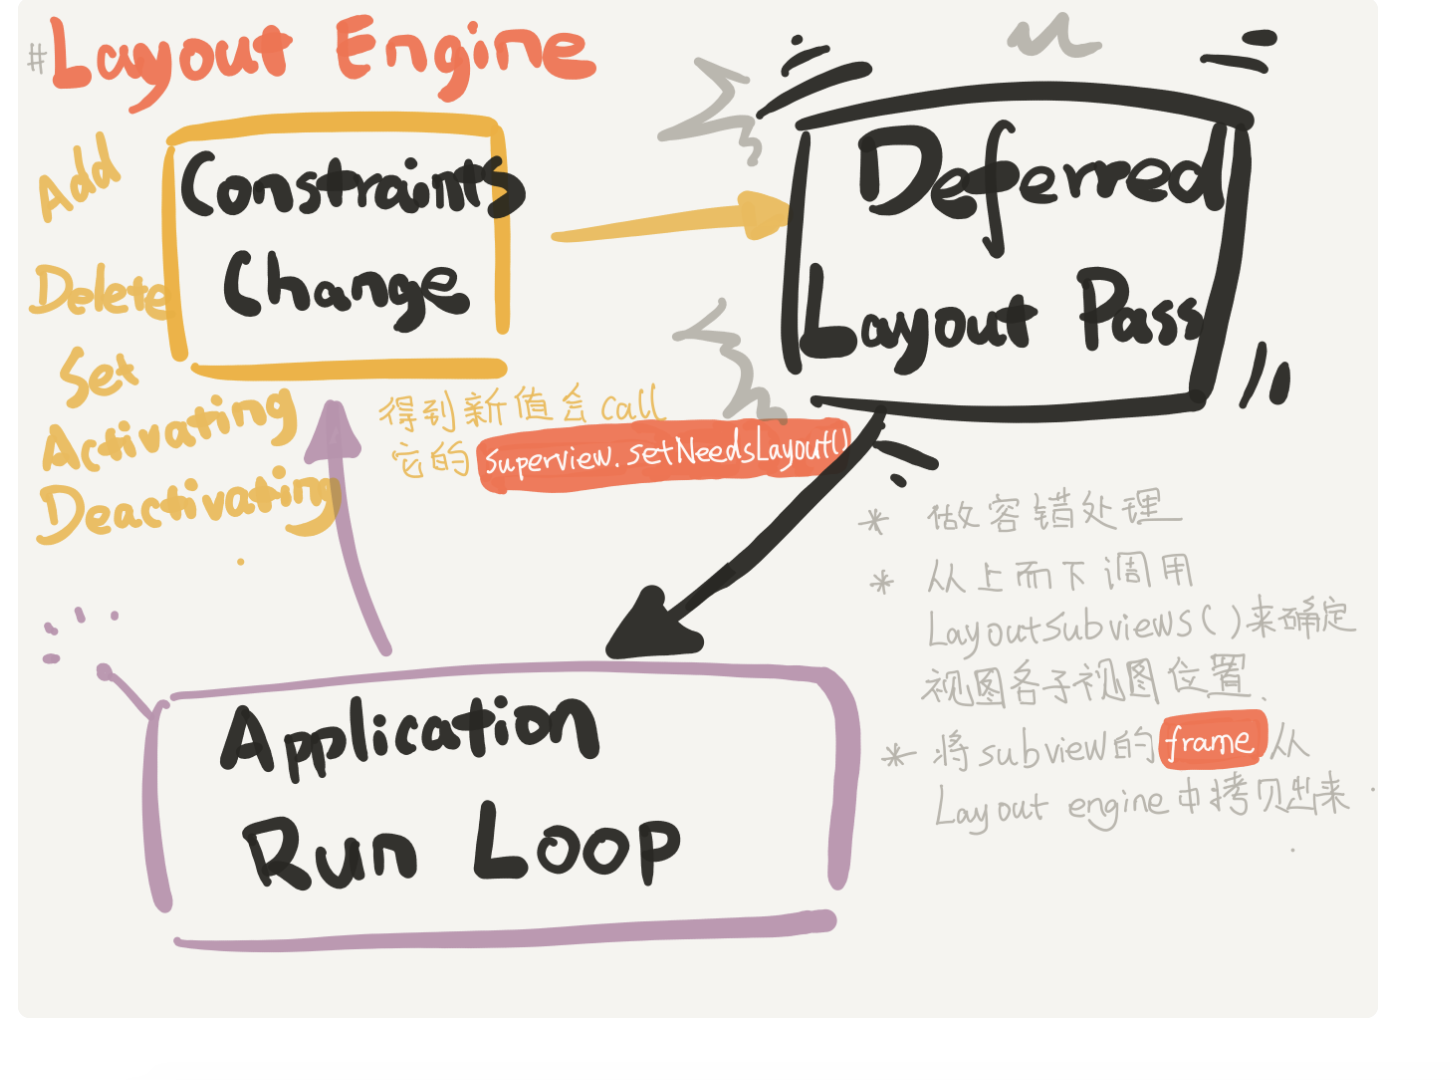 #Layout Engine
Add
Delete
Set
Activating
Deactivating
Constraints
Change
得到新值会call
它的 superview.setNeedsLayout()
Deferred
Layout Pass
* 做容错处理
* 从上而下调用
LayoutSubviews()来确定
视图各子视图位置.
* 将subview的frame从
Layout engine中拷贝出来.
Application
Run Loop